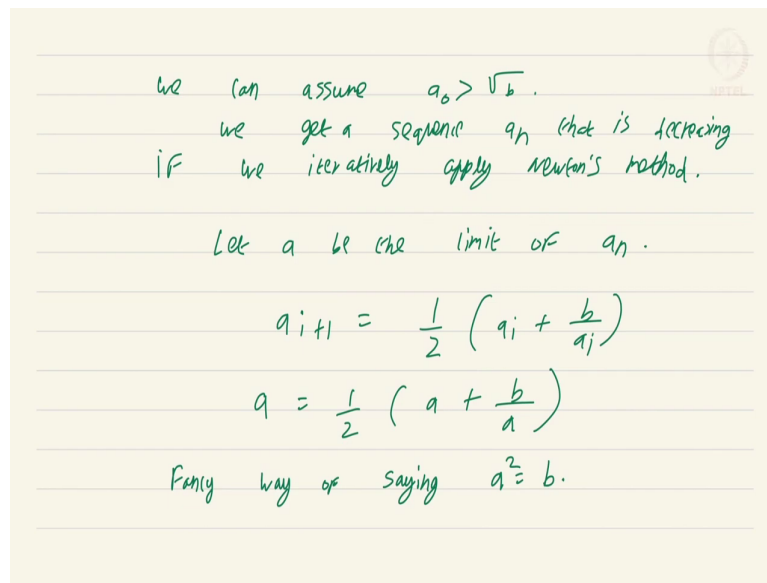 we can assume a₀ > √b.
we get a sequence aₙ that is decreasing
if we iteratively apply Newton's method.
Let a be the limit of aₙ.
aᵢ₊₁ = 1/2 (aᵢ + b/aᵢ)
a = 1/2 (a + b/a)
Fancy way of saying a² = b.
NPTEL